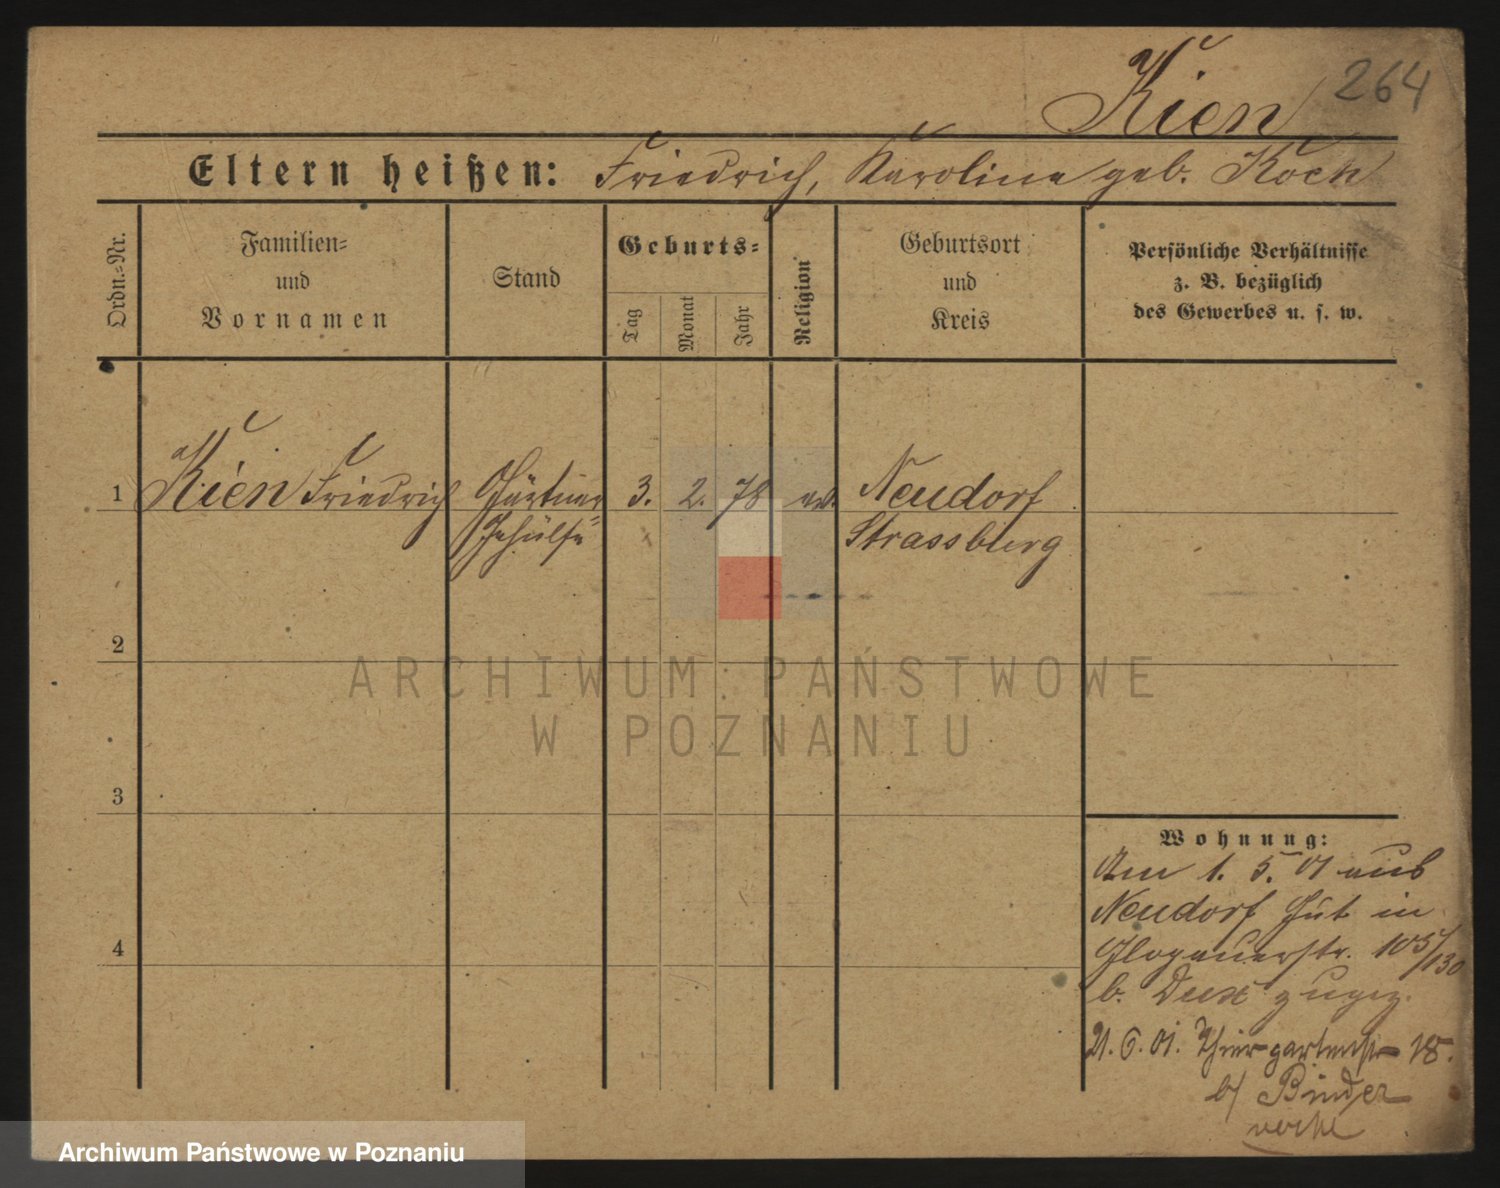 Kien 264
Eltern heißen: Friedrich, Karoline geb. Koch
Ordn.=Nr.
Familien=
und
Vornamen
Stand
Geburts=
Tag
Monat
Jahr
Religion
Geburtsort
und
Kreis
Persönliche Verhältnisse
z. B. bezüglich
des Gewerbes u. s. w.
1 Kien Friedrich Gärtner 3. 2. 78 ev. Neudorf
Gehülfe Strassburg
2
3
4
ARCHIWUM PAŃSTWOWE
W POZNANIU
Wohnung:
Am 1. 5. 01 aus
Neudorf Gut in
Glogauerstr. 105/130
b. zugez.
21. 6. 01. Thiergartenstr 18.
b/ Binder
Archiwum Państwowe w Poznaniu